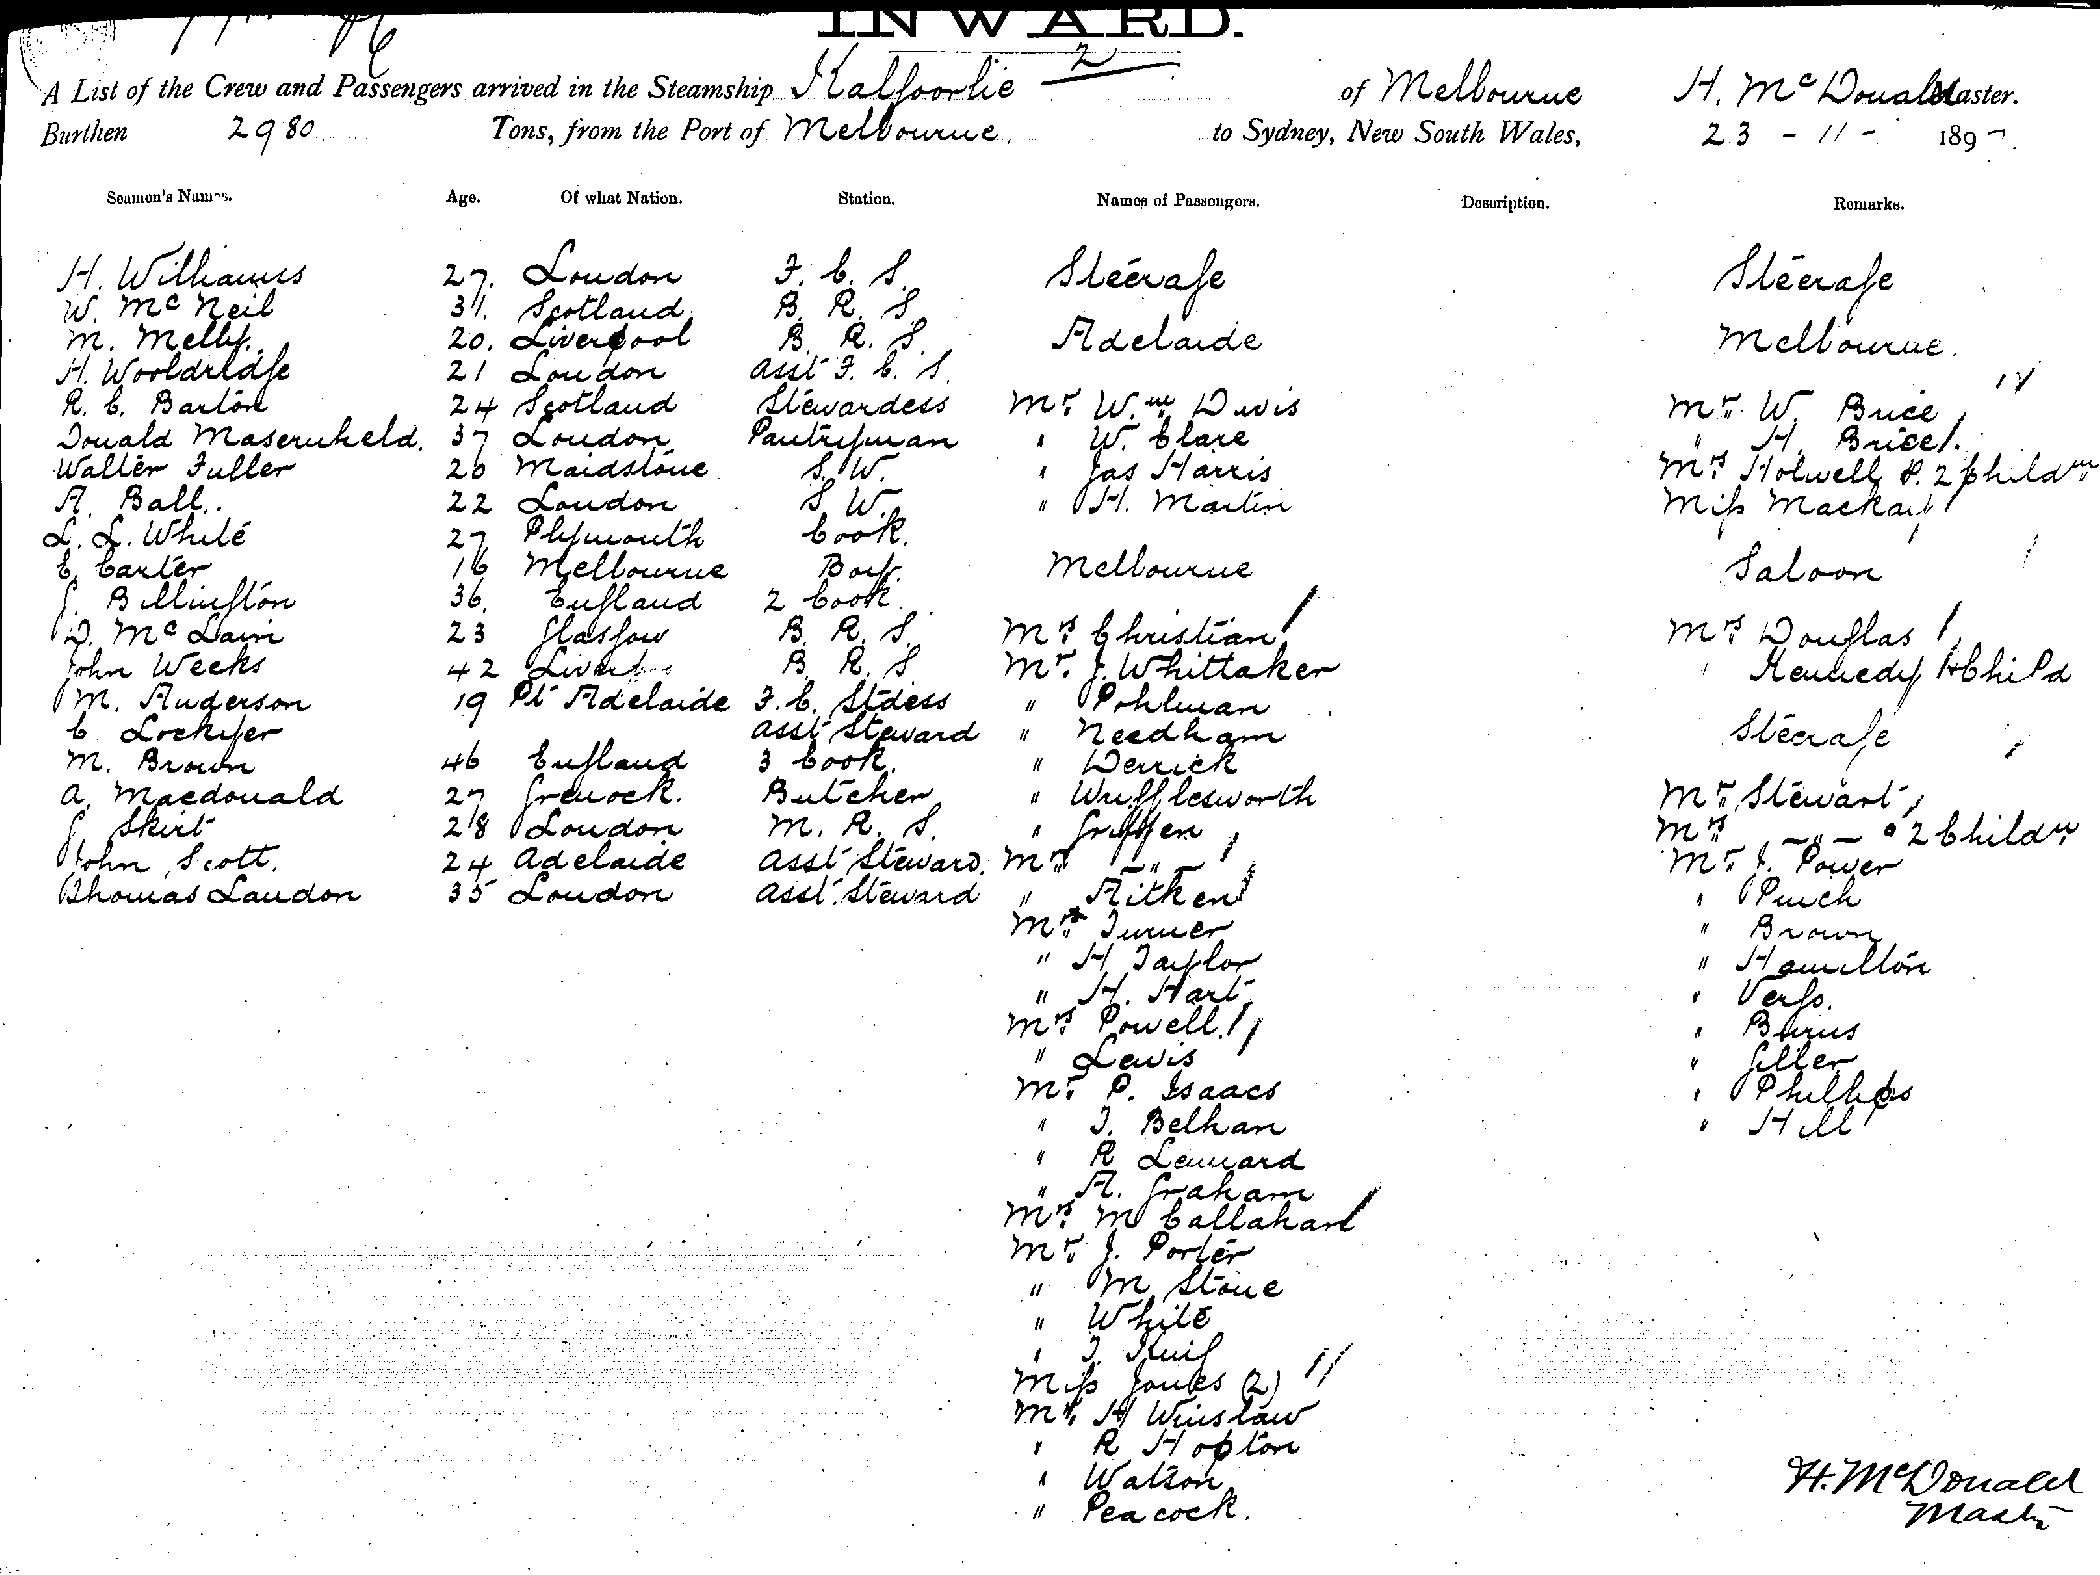 INWARD.
2
A List of the Crew and Passengers arrived in the Steamship Kalgoorlie of Melbourne H. McDonald Master.
Burthen 2980 Tons, from the Port of Melbourne. to Sydney, New South Wales, 23 - 11 - 1897.
Seamen's Names. Age. Of what Nation. Station. Names of Passengers. Description. Remarks.
H. Williams 27. London F. C. S. Steerage Steerage
W. McNeil 31. Scotland B. R. S.
M. Melly. 20. Liverpool B. R. S. Adelaide Melbourne.
H. Wooldridge 21 London Asst F. C. S.
R. C. Barton 24 Scotland Stewardess Mr. Wm Davis Mr. W. Brice
Donald 37 London Pantryman " W. Clare " H. Brice
Walter Fuller 20 Maidstone S. W. " Jas Harris Mrs Holwell & 2 Childrn
A. Ball. 22 London S. W. " H. Martin Miss Mackay
L. L. White 27 Plymouth Cook.
C. Carter 16 Melbourne Boy. Melbourne Saloon
J. Billington 36. England 2 Cook.
D. McLain 23 Glasgow B. R. S. Mrs Christian Mrs Douglas
John Weeks 42 B. R. S Mr. J. Whittaker " Kennedy & Child
M. Angerson 19 Pt Adelaide F. C. Stdess " Pohlman
C. Lockyer Asst Steward " Needham Steerage
M. Brown 46 England 3 Cook. " Derrick
A. Macdonald 27 Greenock. Butcher " Wrigglesworth Mr. Stewart
J. Skirt 28 London M. R. S. " Griffen Mrs - " - & 2 Childrn
John Scott. 24 Adelaide Asst Steward. Mrs - " - Mr. J. Power
Thomas Landon 35 London Asst. Steward " Aitken " Punch
Mr. Turner " Brown
" H Taylor " Hamilton
" H. Hart. " Vergo.
Mrs Powell. " Burns
" Lewis " Giller
Mr. P. Isaacs " Phillips
" J. Belhan " Hill
" R Lennard
" A. Graham
Mrs M Callahan
Mr. J. Porter
" M Stone
" White
" J. King
Miss Jones (2)
Mr. H Winslaw
" R Hopton
" Watson
" Peacock.
H. McDonald
Master